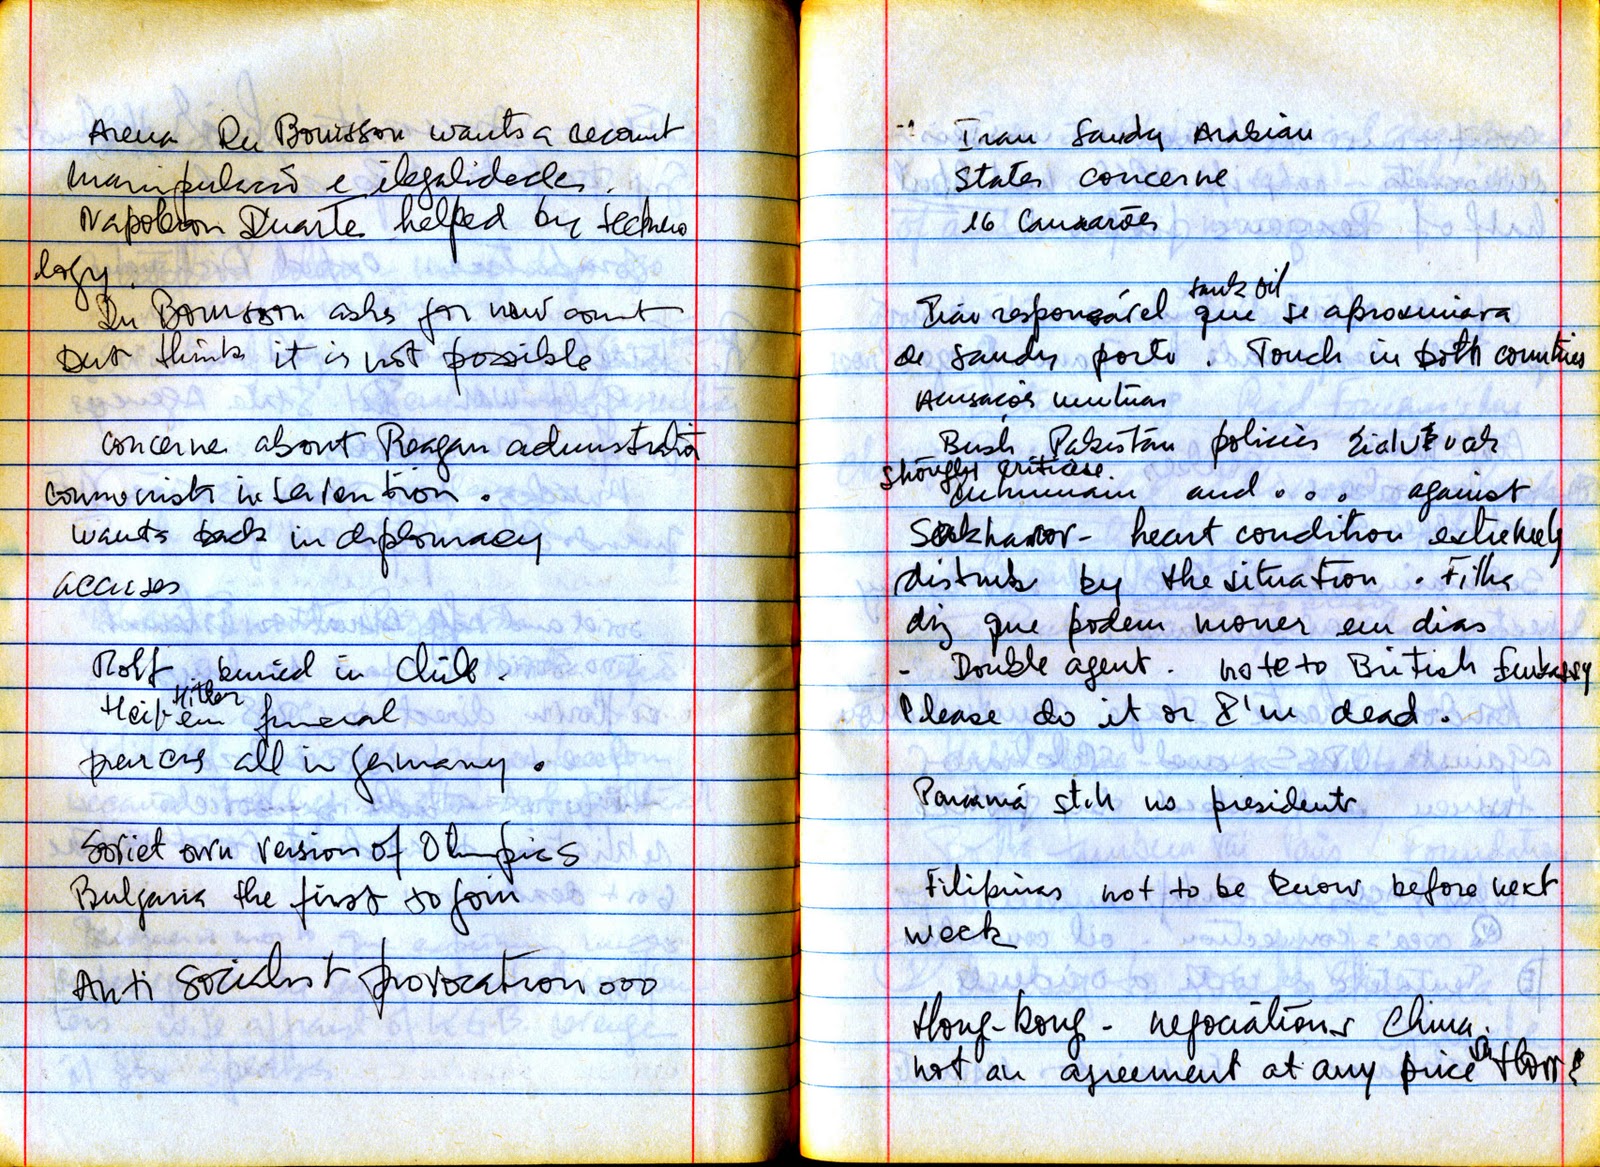 Arena Du Bouisson wants a recount
manipulação e ilegalidades.
Napoleon Duarte helped by techno
logy.
Du Bouisson asks for new count
but thinks it is not possible
concerne about Reagan
communists intervention.
wants back in diplomacy
accuses
Rolf buried in Chile.
Heil Hitler em funeral
all in germany.
Soviet own version of Olimpics
Bulgaria the first to join
Anti Socialist provocation ooo
Iran Saudy Arabian
States concerne
16
Irão responsável sank oil que se aproximara
de Saudy porto. Touch in both countries
Acusações mutuas
Bush Pakistan policies
Strongly criticise
and . . . against
Sakharov - heart condition extremely
disturb by the situation. Filha
diz que podem morrer em dias
- Double agent. note to British Embassy
Please do it or I'm dead.
Panamá still no president
Filipinas not to be know before next
week
Hong-Kong - negociations China.
not an agreement at any price